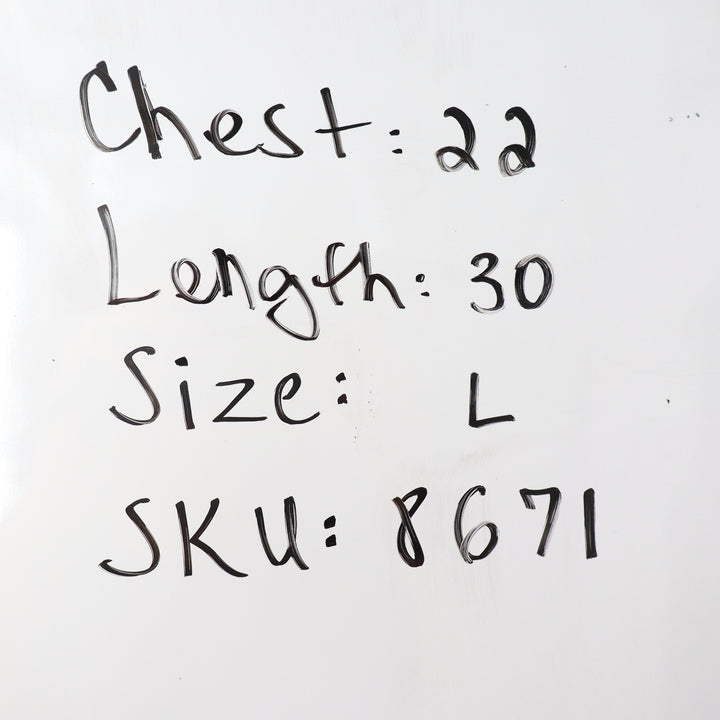 Chest: 22
Length: 30
Size: L
SKU: 8671